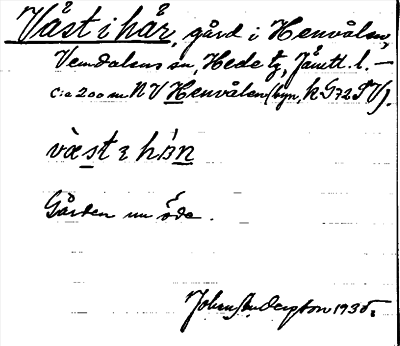 Väst i hår, gård i Henvålen,
Vemdalens sn, Hede tg, Jämtl. l. —
c:a 200 m NV Henvålen (byn, k G72 SV).
væst i hån
Gården nu öde.
Johan Anderson 1935.